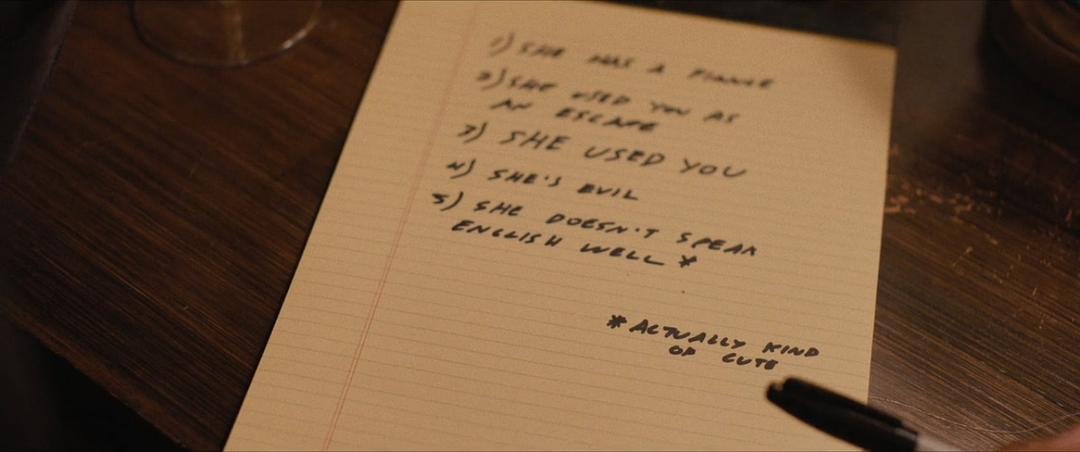 1) SHE HAS A FIANCE
2) SHE USED YOU AS
AN ESCAPE
3) SHE USED YOU
4) SHE'S EVIL
5) SHE DOESN'T SPEAK
ENGLISH WELL *
* ACTUALLY KIND
OF CUTE